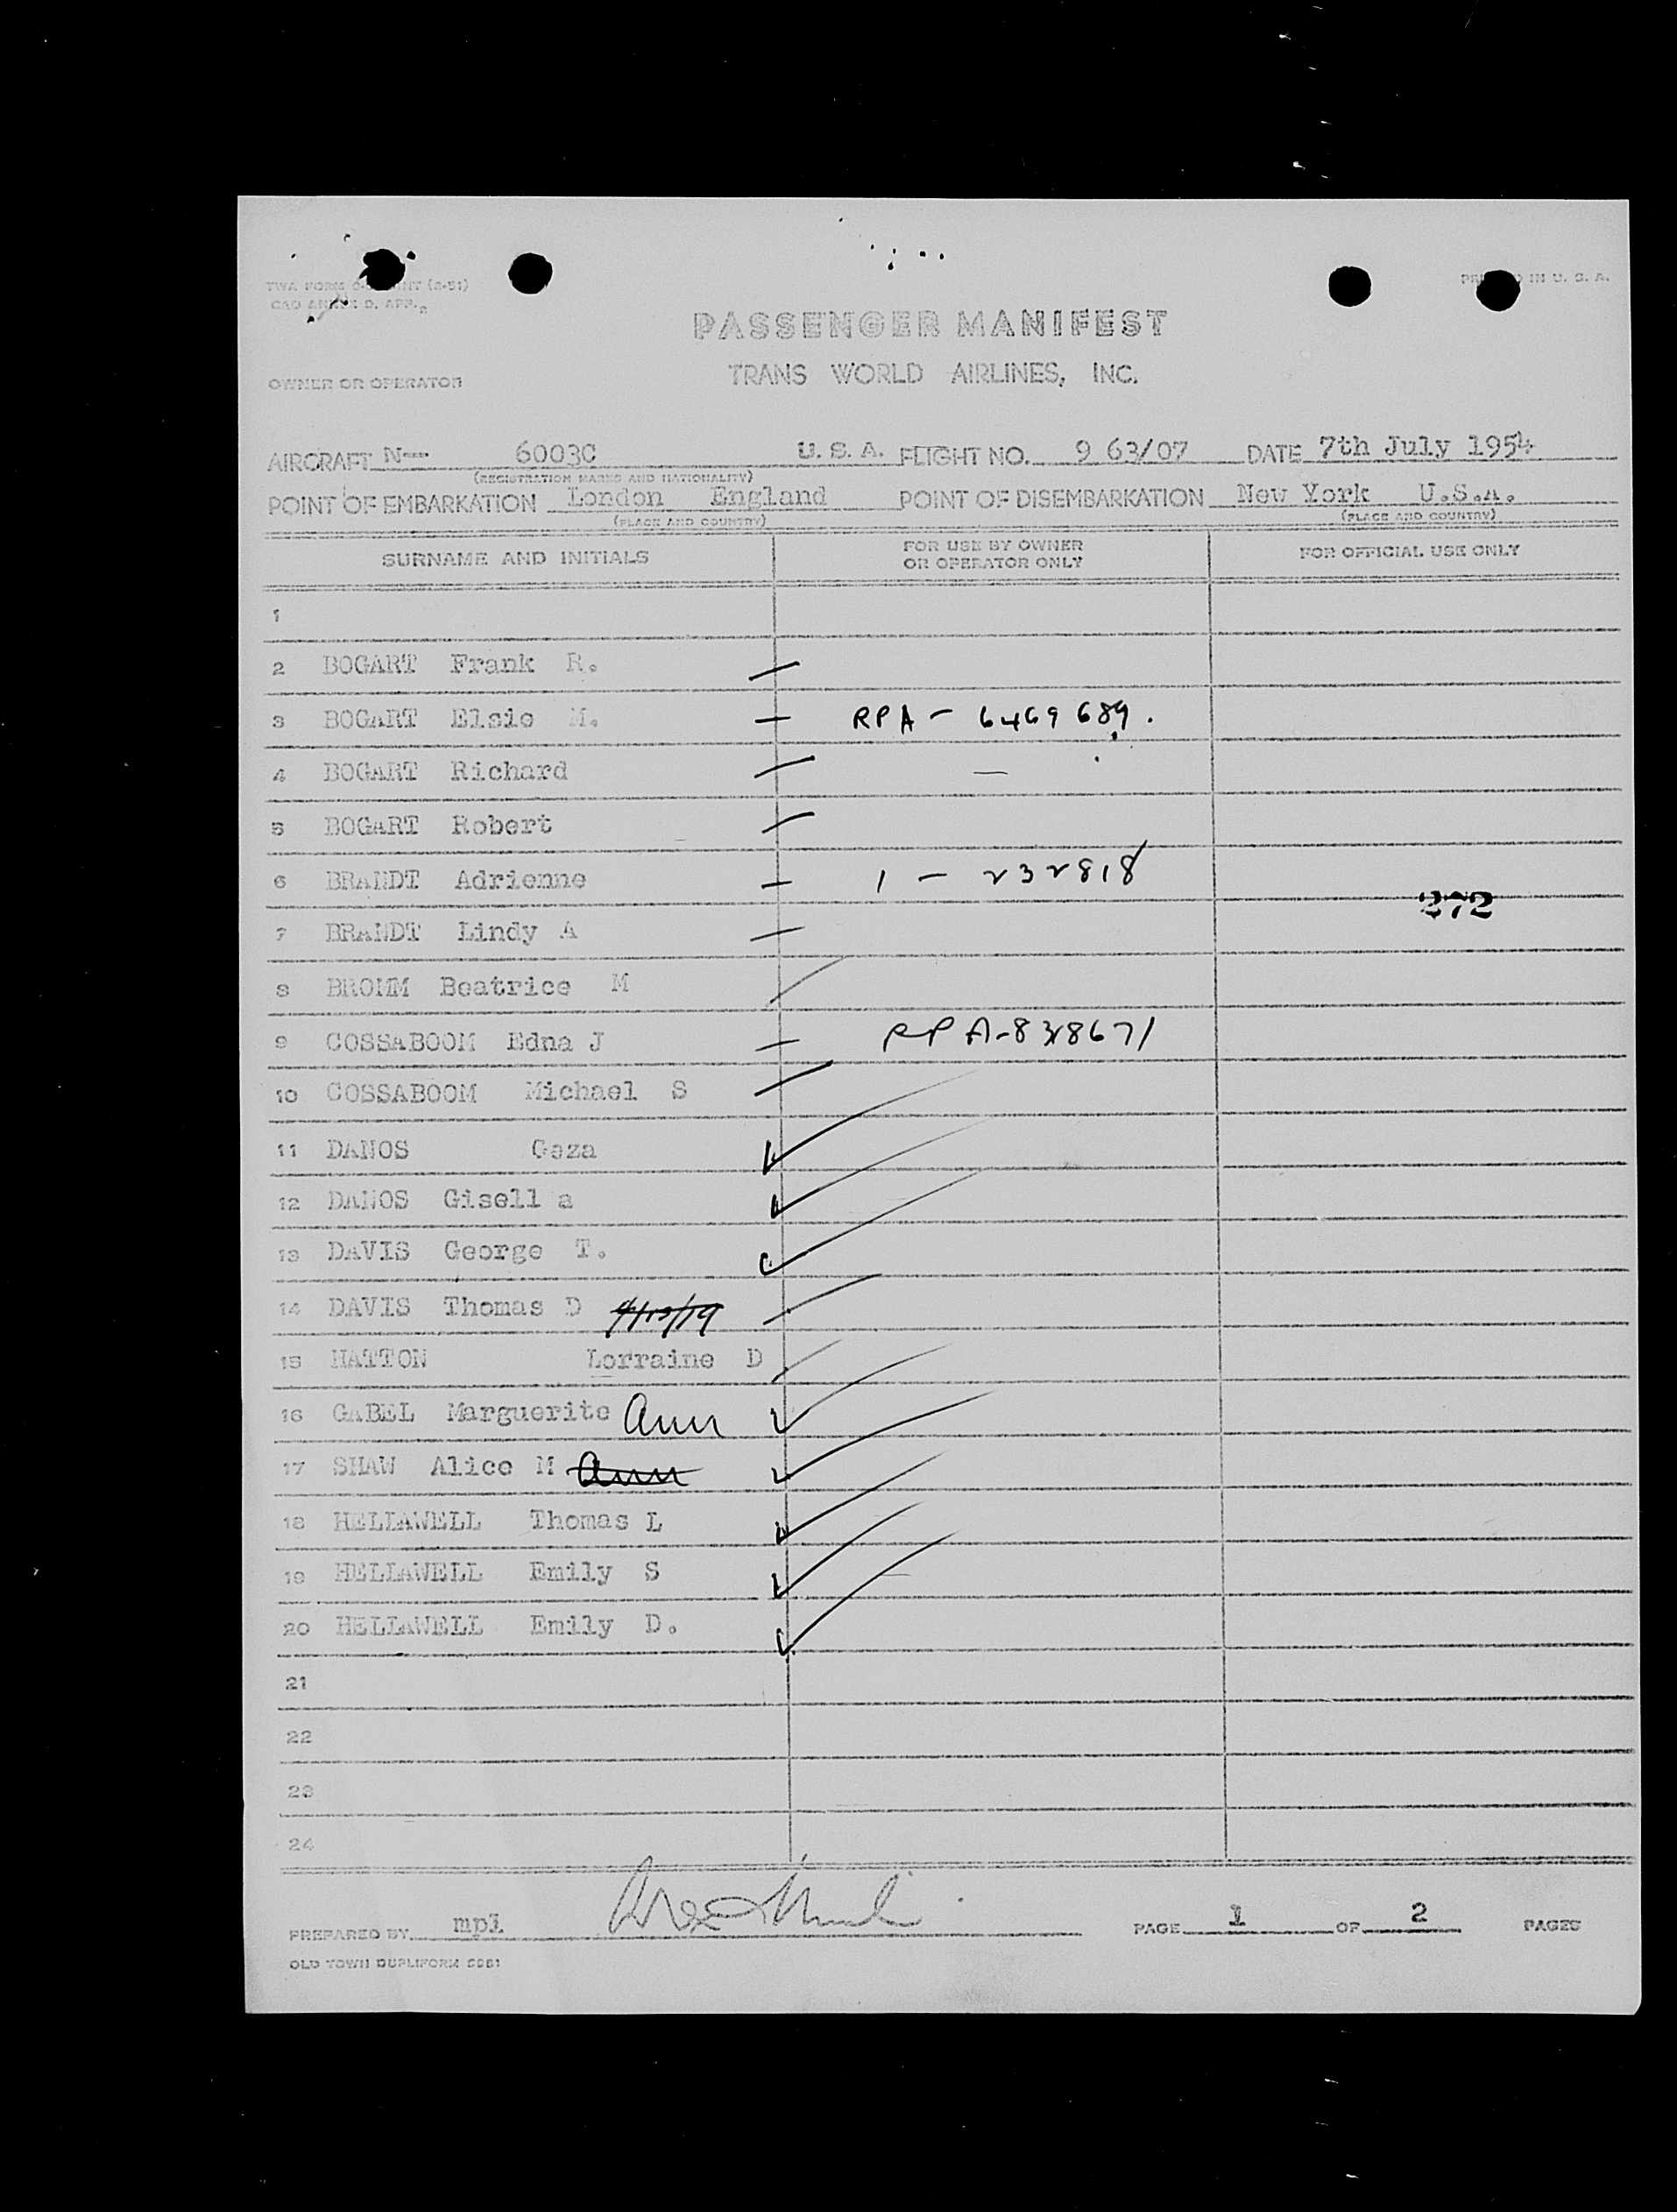 TWA FORM
PRINTED IN U. S. A.
PASSENGER MANIFEST
OWNER OR OPERATOR TRANS WORLD AIRLINES, INC.
AIRCRAFT N-- 6003C U. S. A. FLIGHT NO. 9 63/07 DATE 7th July 1954
(REGISTRATION MARKS AND NATIONALITY)
POINT OF EMBARKATION London England POINT OF DISEMBARKATION New York U.S.A.
(PLACE AND COUNTRY) (PLACE AND COUNTRY)
SURNAME AND INITIALS FOR USE BY OWNER OR OPERATOR ONLY FOR OFFICIAL USE ONLY
1
2 BOGART Frank R.
3 BOGART Elsie M. RPA - 6469689.
4 BOGART Richard
5 BOGART Robert
6 BRANDT Adrienne 1 - 232818
272
7 BRANDT Lindy A
8 BROMM Beatrice M
9 COSSABOOM Edna J RPA-838671
10 COSSABOOM Michael S
11 DANOS Geza
12 DANOS Gisell a
13 DAVIS George T.
14 DAVIS Thomas D
15 HATTON Lorraine D
16 GABEL Marguerite Ann
17 SHAW Alice M Ann
18 HELLAWELL Thomas L
19 HELLAWELL Emily S
20 HELLAWELL Emily D.
21
22
23
24
PREPARED BY mpl PAGE 1 OF 2 PAGES
OLD TOWN DUPLIFORM